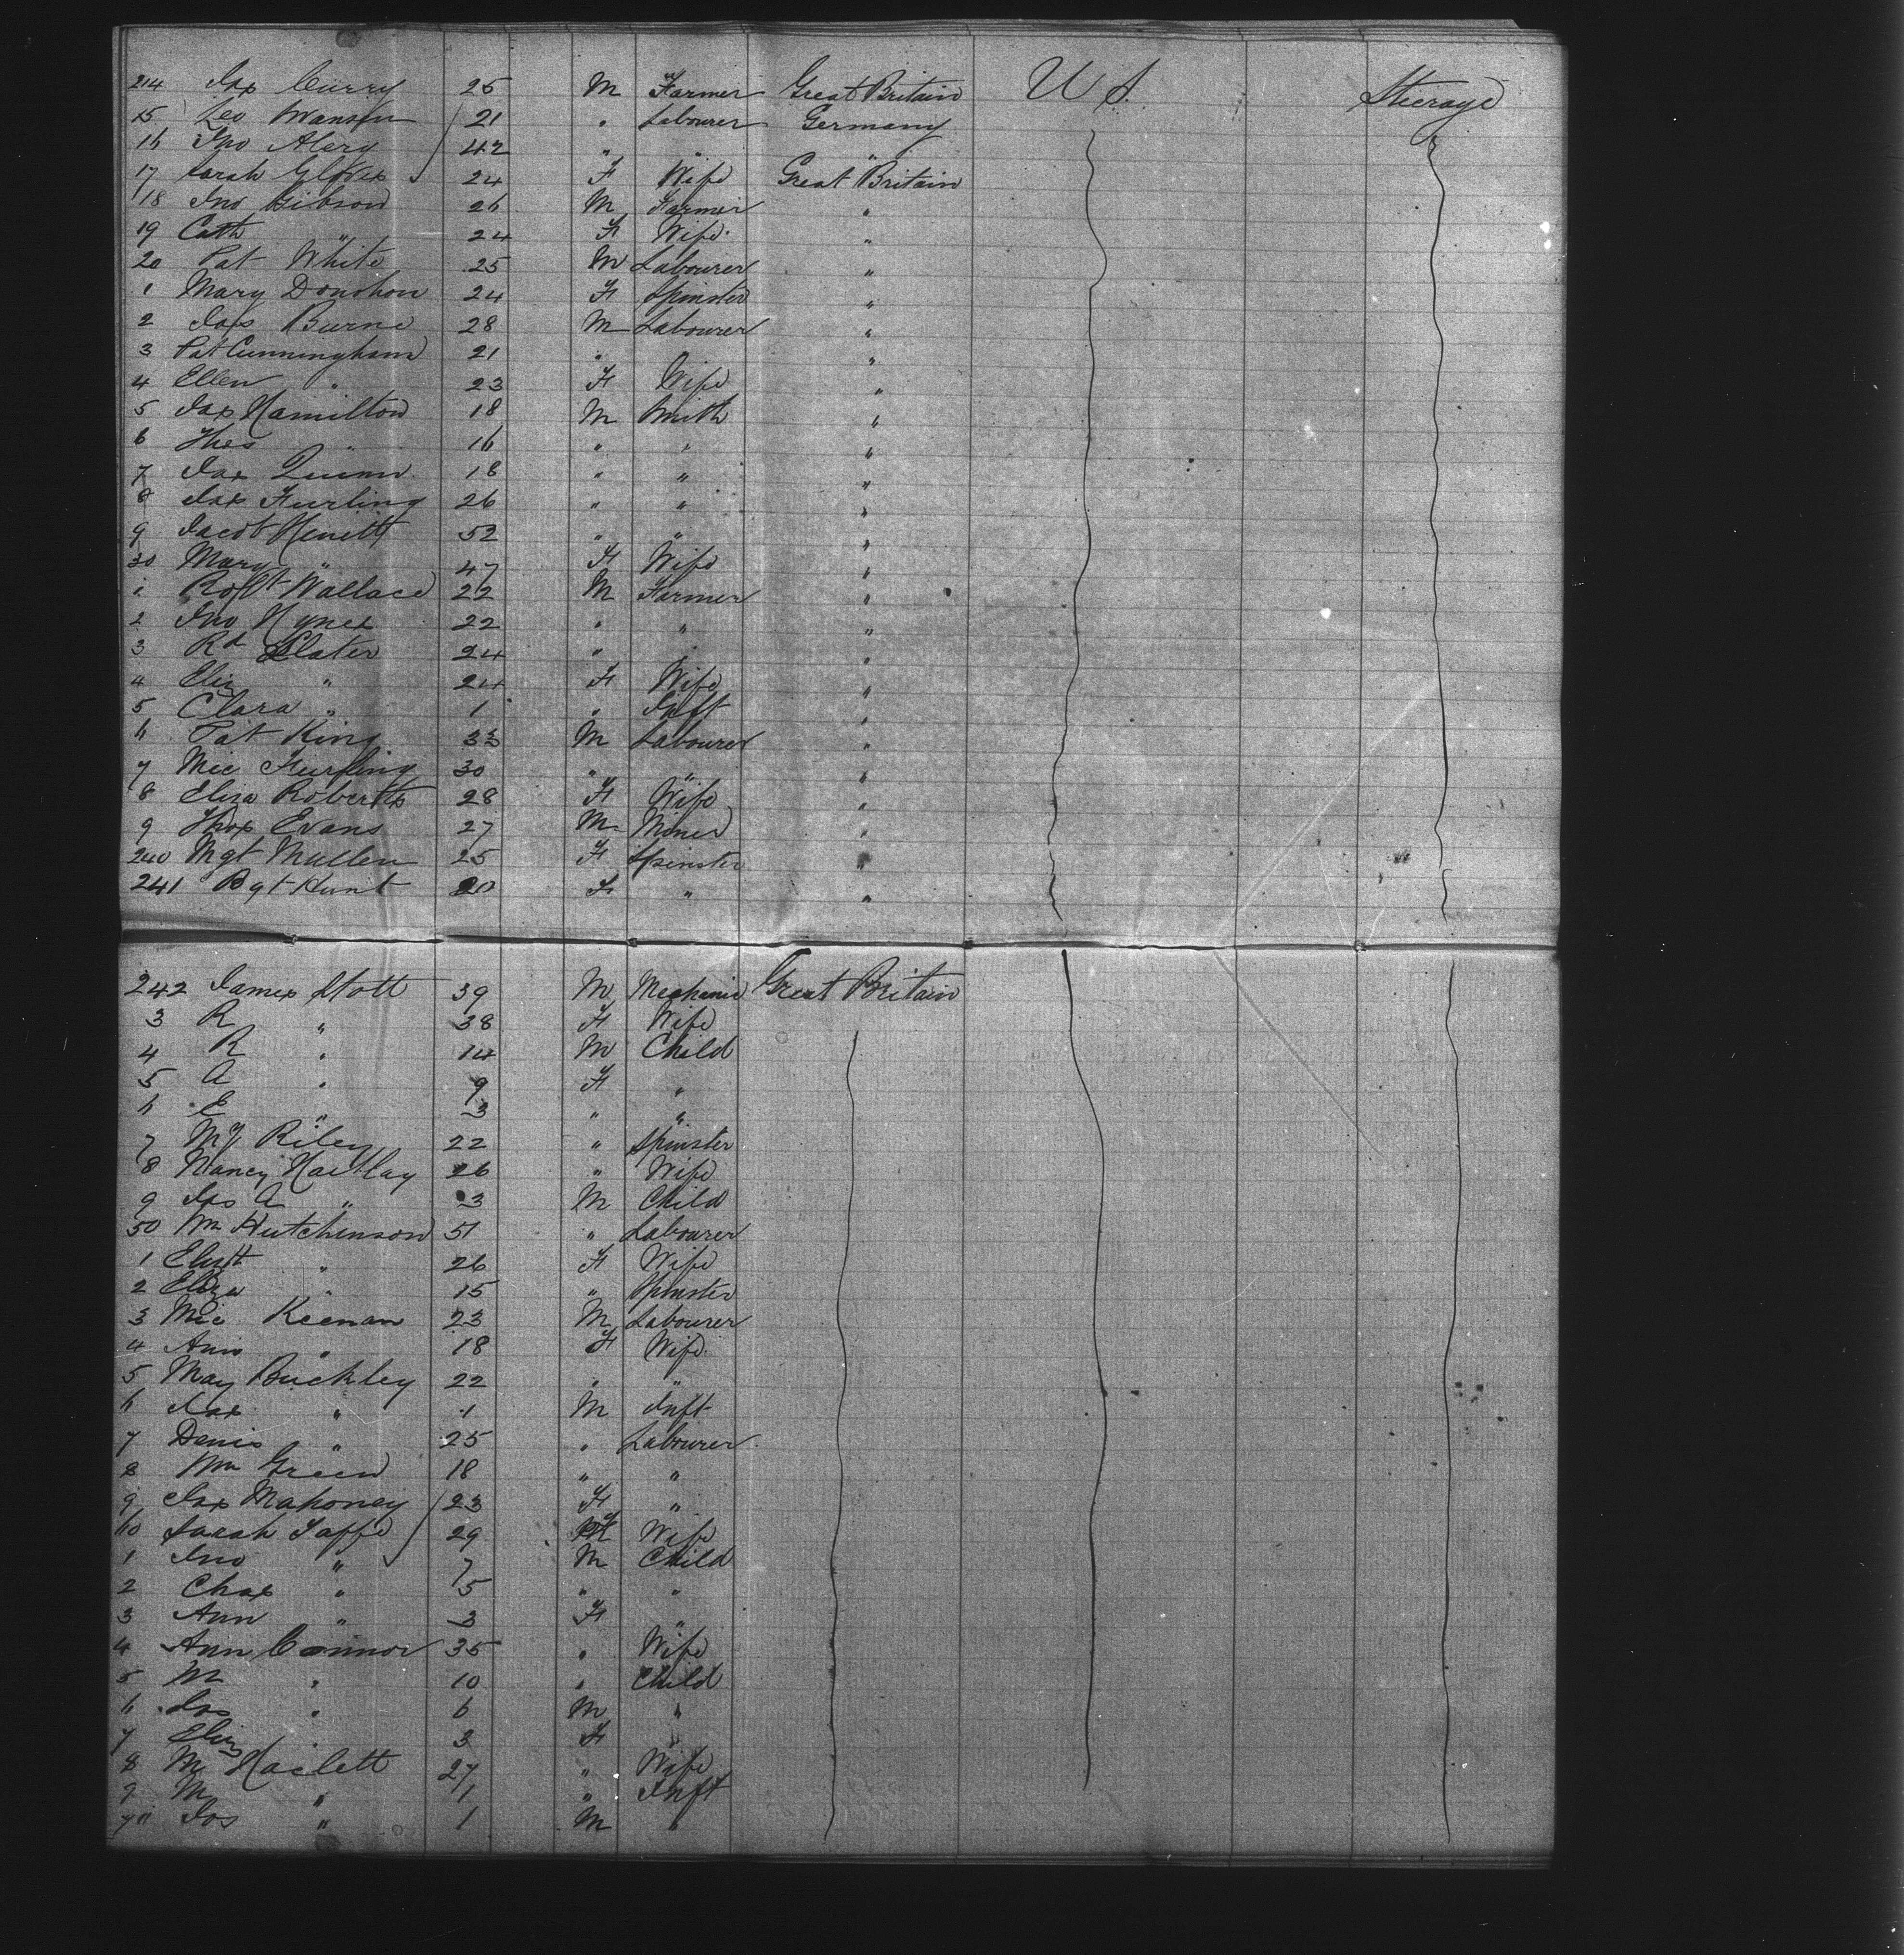 214 Jas Curry 25 M Farmer Great Britain U S. Steerage
15 Leo Wansen 21 " Labourer Germany
16 Jno Alery 42 " " "
17 Sarah Glover 24 F Wife Great Britain
18 Jno Gibson 26 M Farmer "
19 Cath " 24 F Wife "
20 Pat White 25 M Labourer "
1 Mary Donohou 24 F Spinster "
2 Jas Burne 28 M Labourer "
3 Pat Cunningham 21 " "
4 Ellen " 23 F Wife "
5 Jas Hamilton 18 M Smith "
6 Thos " 16 " " "
7 Jas Quinn 18 " " "
8 Jas Furling 26 " " "
9 Jacob Hewitt 52 " " "
30 Mary " 47 F Wife "
1 Robt Wallace 22 M Farmer "
2 Jno Hynes 22 " " "
3 Rd Slater 24 " " "
4 Eliz " 24 F Wife "
5 Clara " 1 " Inft "
6 Pat King 33 M Labourer "
7 Mic Furling 30 " " "
8 Eliza Roberts 28 F Wife "
9 Thos Evans 27 M Miner "
240 Mgt Mullen 25 F Spinster "
241 Bgt Hunt 20 F " "
242 James Stott 39 M Mechanic Great Britain
3 R " 38 F Wife
4 R " 14 M Child
5 A " 9 F "
6 E " 3 " "
7 My Riley 22 " Spinster
8 Nancy Hartley 26 " Wife
9 Jas A " 3 M Child
50 Wm Hutchinson 51 " Labourer
1 Elizth " 26 F Wife
2 Eliza " 15 " Spinster
3 Mic Keenan 23 M Labourer
4 Ann " 18 F Wife
5 May Buckley 22 " "
6 Jas " 1 M Inft
7 Denis " 25 " Labourer
8 Wm Green 18 " "
9 Jas Mahoney 23 F "
60 Sarah Taffe 29 F Wife
1 Jno " 7 M Child
2 Chas " 5 " "
3 Ann " 3 F "
4 Ann Connor 35 " Wife
5 M " 10 " Child
6 Jas " 6 M "
7 Eliz 3 F "
8 M Haslett 27 " Wife
9 M " 1 " Inft
70 Jos " 1 M "